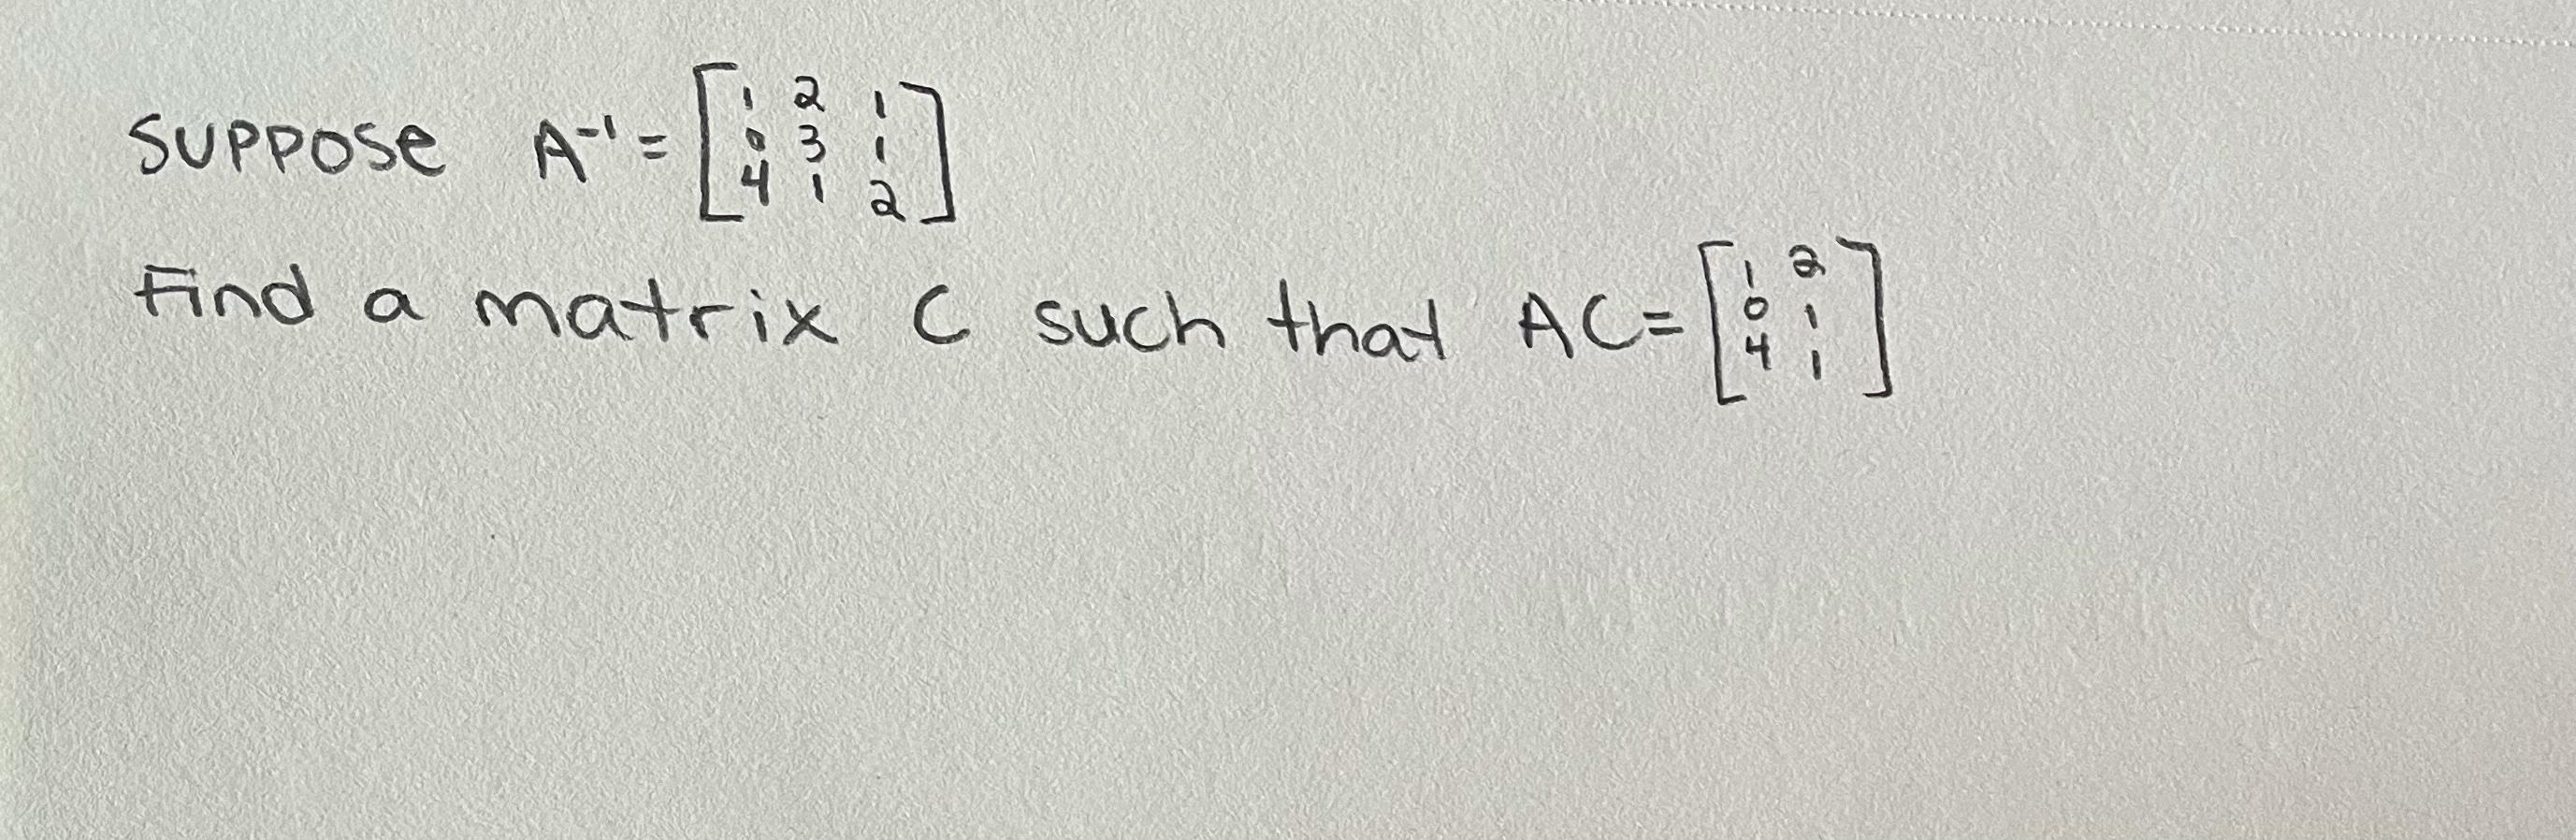 Suppose A⁻¹ = [1 2 1; 0 3 1; 4 1 2]
Find a matrix C such that AC = [1 2; 0 1; 4 1]